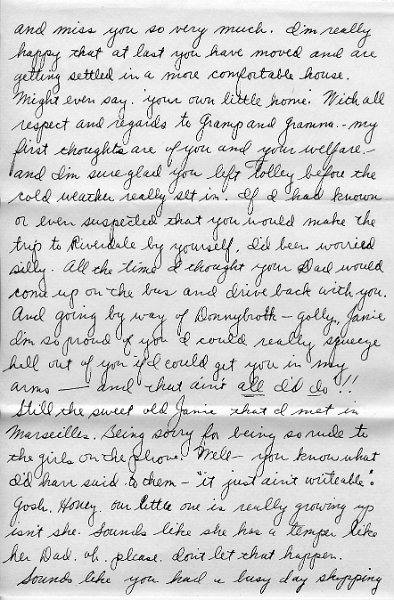 and miss you so very much. I'm really
happy that at last you have moved and are
getting settled in a more comfortable house.
Might even say. 'your own little home'. With all
respect and regards to Gramp and Gramma. - my
first thoughts are of you and your welfare -
and I'm sure glad you left Tolley before the
cold weather really set in. If I had known
or even suspected that you would make the
trip to Riverdale by yourself, I'd been worried
silly. All the time I thought your Dad would
come up on the bus and drive back with you.
And going by way of Donnybrook - golly, Janie
I'm so proud of you I could really squeeze
hell out of you if I could get you in my
arms — and that ain't all I'd do!!
Still the sweet old Janie that I met in
Marseilles. Being sorry for being so rude to
the girls on the phone. Well - you know what
I'd have said to them - "it just ain't writeable".
Gosh. Honey. our little one is really growing up
isn't she. Sounds like she has a temper like
her Dad. oh. please. don't let that happen.
Sounds like you had a busy day shipping